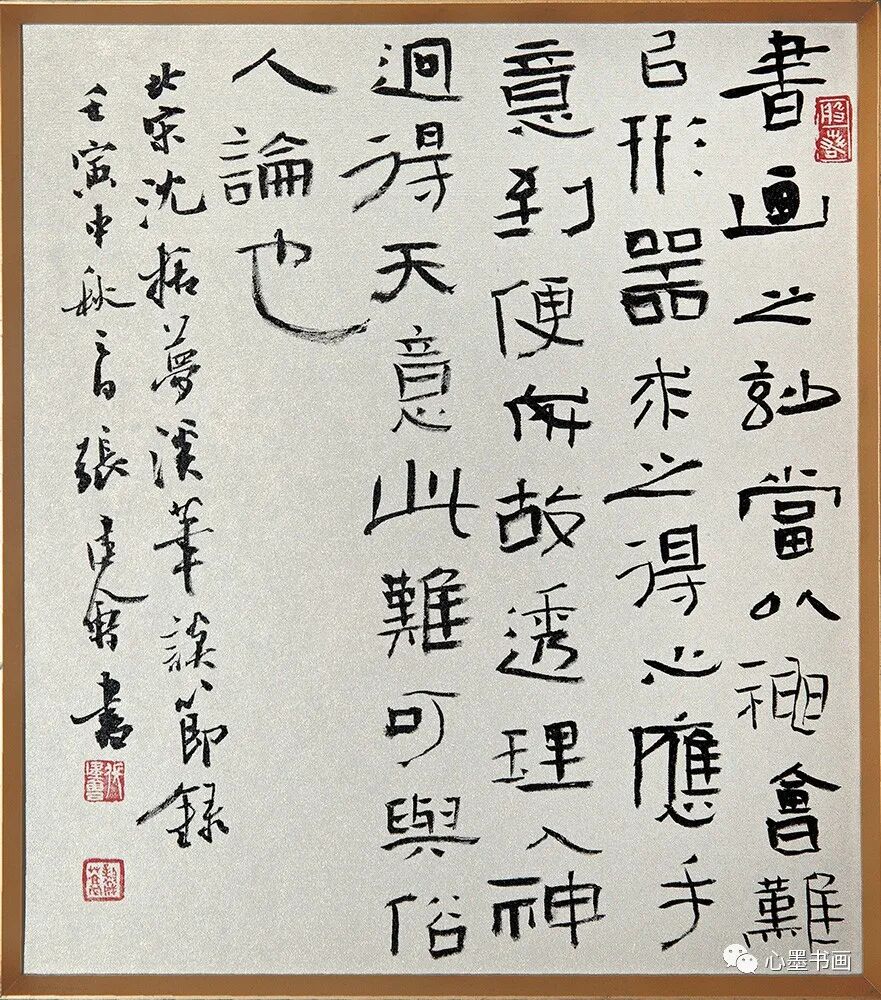 書画之玅當以神會難
㠯形器求之得心應手
意到便成故透理入神
迥得天意此難可與俗
人論也
北宋沈括夢溪筆談節録
壬寅中秋張建會書
心墨书画